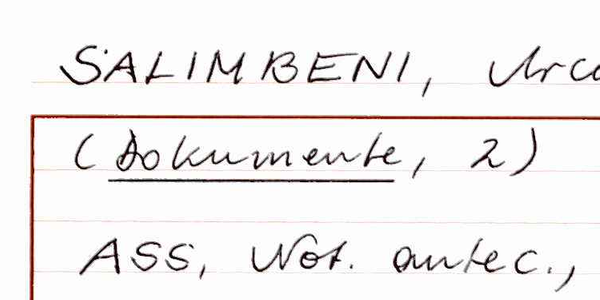 SALIMBENI, Arca
(Dokumente, 2)
ASS, Not. antec.,